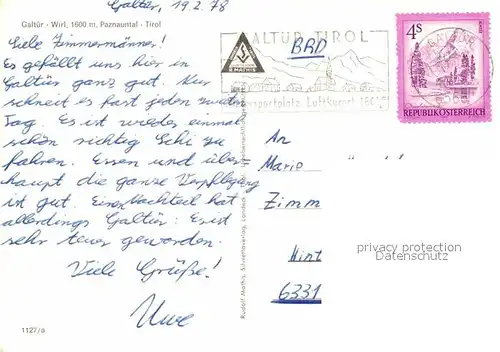 Galtür, 19.2.78
Galtür - Wirl, 1600 m, Paznauntal - Tirol
Liebe Zimmermänner!
Es gefällt uns hier in
Galtür ganz gut. Nur
schneit es fast jeden zweiten
Tag. Es ist wieder einmal
schön richtig Schi zu
fahren. Essen und über-
haupt die ganze Verpflegung
ist gut. Einen Nachteil hat
allerdings Galtür: Es ist
sehr teuer geworden.
Viele Grüße!
Uwe
1127/a
Rudolf Mathis,
R. MATHIS
GALTÜR TIROL
BRD
Luftkurort
4 S
REPUBLIK ÖSTERREICH
An
Mario
Zimm
Hint
6331
privacy protection
Datenschutz